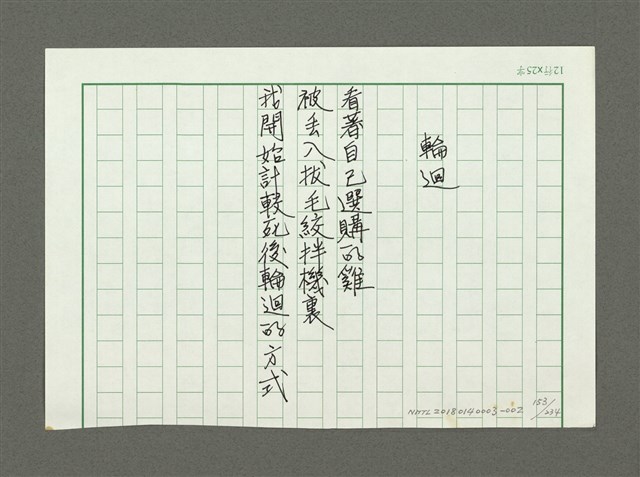 輪迴
看著自己選購的雞
被丟入拔毛絞拌機裏
我開始計較死後輪迴的方式
12行x25字
NMTL20180140003-002
153/234